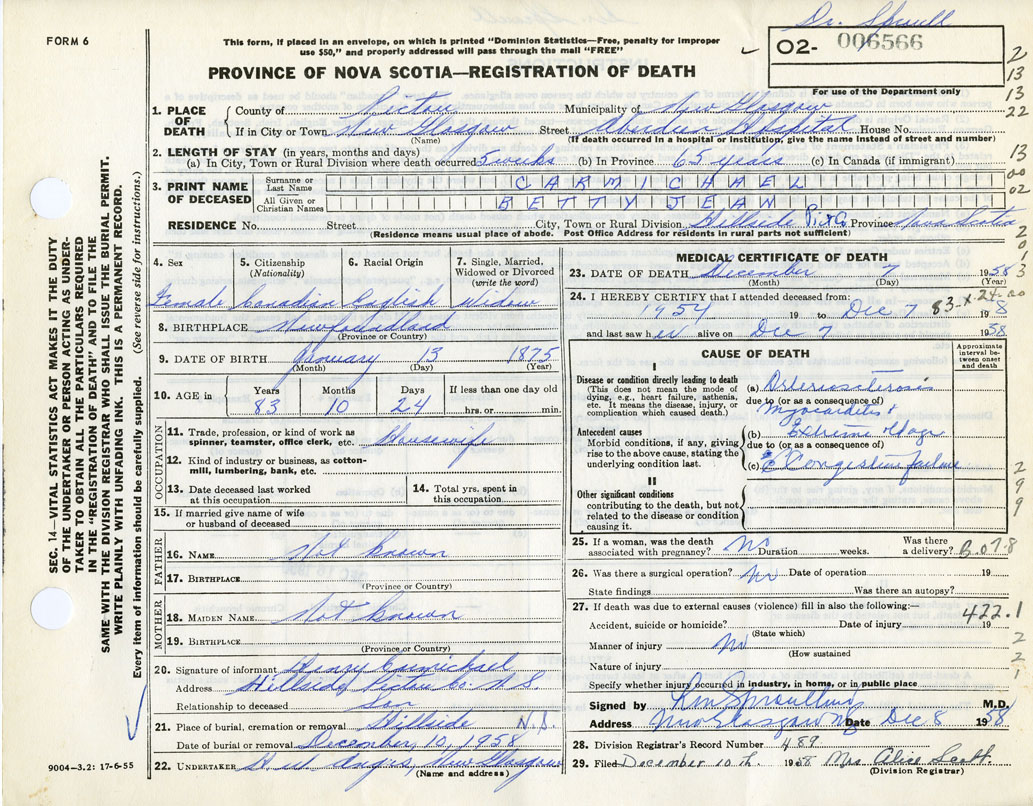 Dr. Sproull
FORM 6
This form, if placed in an envelope, on which is printed "Dominion Statistics—Free, penalty for improper
use $50," and properly addressed will pass through the mail "FREE"
02- 006566
PROVINCE OF NOVA SCOTIA—REGISTRATION OF DEATH
For use of the Department only
2
13
13
22
1. PLACE OF DEATH County of Pictou Municipality of New Glasgow
If in City or Town New Glasgow Street Aberdeen Hospital House No.
(Name) (If death occurred in a hospital or institution, give the name instead of street and number)
2. LENGTH OF STAY (in years, months and days)
(a) In City, Town or Rural Division where death occurred 5 weeks (b) In Province 65 years (c) In Canada (if immigrant)
13
00
02
3. PRINT NAME OF DECEASED
Surname or Last Name CARMICHAEL
All Given or Christian Names BETTY JEAN
RESIDENCE No. Street City, Town or Rural Division Hillside Pict Co Province Nova Scotia
(Residence means usual place of abode. Post Office Address for residents in rural parts not sufficient)
SEC. 14—VITAL STATISTICS ACT MAKES IT THE DUTY
OF THE UNDERTAKER OR PERSON ACTING AS UNDER-
TAKER TO OBTAIN ALL THE PARTICULARS REQUIRED
IN THE "REGISTRATION OF DEATH" AND TO FILE THE
SAME WITH THE DIVISION REGISTRAR WHO SHALL ISSUE THE BURIAL PERMIT.
WRITE PLAINLY WITH UNFADING INK. THIS IS A PERMANENT RECORD.
Every item of information should be carefully supplied. (See reverse side for instructions.)
4. Sex 5. Citizenship (Nationality) 6. Racial Origin 7. Single, Married, Widowed or Divorced (write the word)
Female Canadian English Widow
8. BIRTHPLACE Newfoundland
(Province or Country)
9. DATE OF BIRTH January 13 1875
(Month) (Day) (Year)
10. AGE in Years Months Days If less than one day old
83 10 24 hrs. or min.
OCCUPATION
11. Trade, profession, or kind of work as
spinner, teamster, office clerk, etc. Housewife
12. Kind of industry or business, as cotton-
mill, lumbering, bank, etc.
13. Date deceased last worked at this occupation 14. Total yrs. spent in this occupation
15. If married give name of wife
or husband of deceased
FATHER
16. NAME Not known
17. BIRTHPLACE
(Province or Country)
MOTHER
18. MAIDEN NAME Not known
19. BIRTHPLACE
(Province or Country)
20. Signature of informant Henry Carmichael
Address Hillside Pictou Co. N.S.
Relationship to deceased Son
21. Place of burial, cremation or removal Hillside N.S.
Date of burial or removal December 10, 1958
22. UNDERTAKER Angus, New Glasgow
(Name and address)
9004—3.2: 17-6-55
MEDICAL CERTIFICATE OF DEATH
23. DATE OF DEATH December 7 1958
(Month) (Day) (Year)
24. I HEREBY CERTIFY that I attended deceased from: 83-X-24-00
1954 19 to Dec 7 1958
and last saw her alive on Dec 7 1958
CAUSE OF DEATH
Approximate interval between onset and death
I
Disease or condition directly leading to death
(This does not mean the mode of
dying, e.g., heart failure, asthenia,
etc. It means the disease, injury, or
complication which caused death.)
(a) Arteriosclerosis
due to (or as a consequence of)
Myocarditis +
Antecedent causes
Morbid conditions, if any, giving
rise to the above cause, stating the
underlying condition last.
(b) Extreme old age
due to (or as a consequence of)
(c) Congestive failure
II
Other significant conditions
contributing to the death, but not
related to the disease or condition
causing it.
2
9
9
25. If a woman, was the death
associated with pregnancy? No Duration weeks. Was there a delivery?
26. Was there a surgical operation? No Date of operation 19
State findings Was there an autopsy?
27. If death was due to external causes (violence) fill in also the following:— 422.1
Accident, suicide or homicide? Date of injury 19
(State which)
Manner of injury No
(How sustained
Nature of injury
2
2
1
Specify whether injury occurred in industry, in home, or in public place
Signed by Sproull M.D.
Address New Glasgow NS Date Dec 8 1958
28. Division Registrar's Record Number 489
29. Filed December 10th. 1958 Mrs Alice Scott.
(Division Registrar)